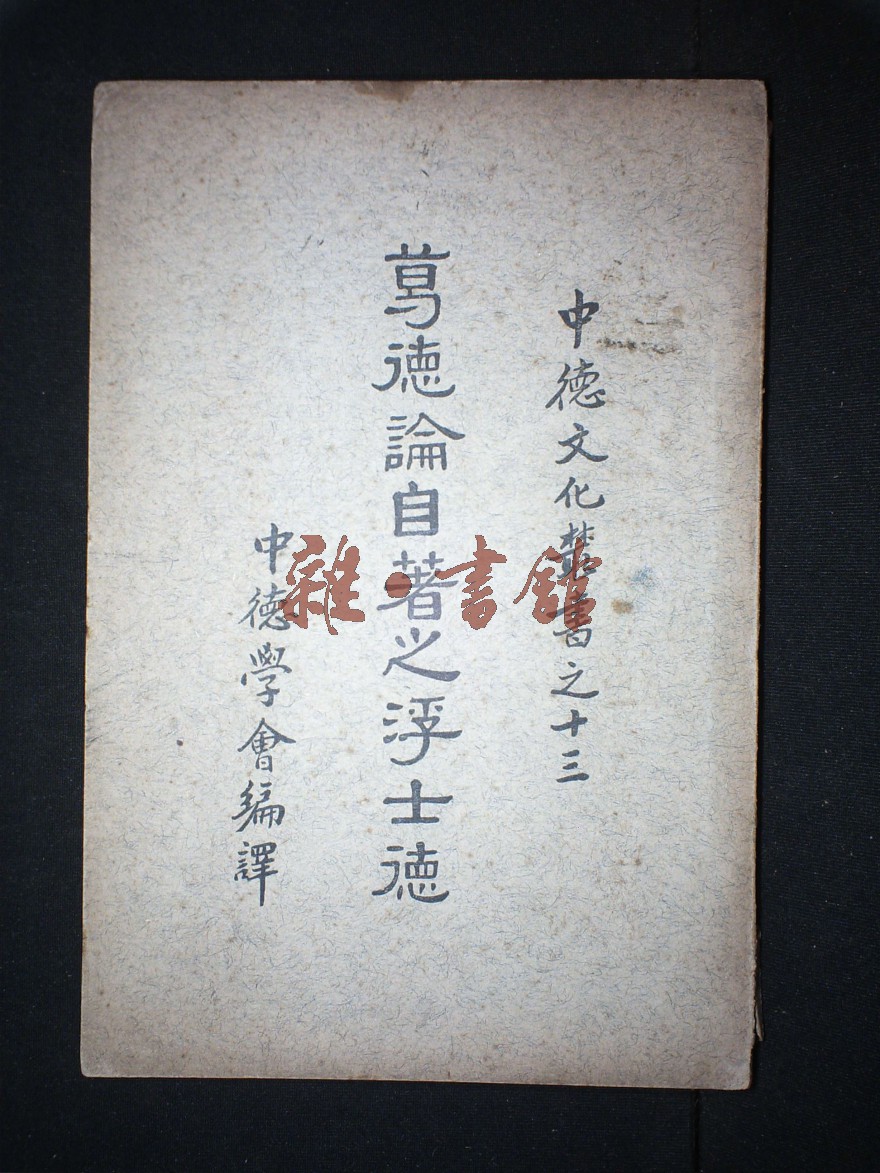 中德文化叢書之十三
葛德論自著之浮士德
中德學會編譯
雜·書館